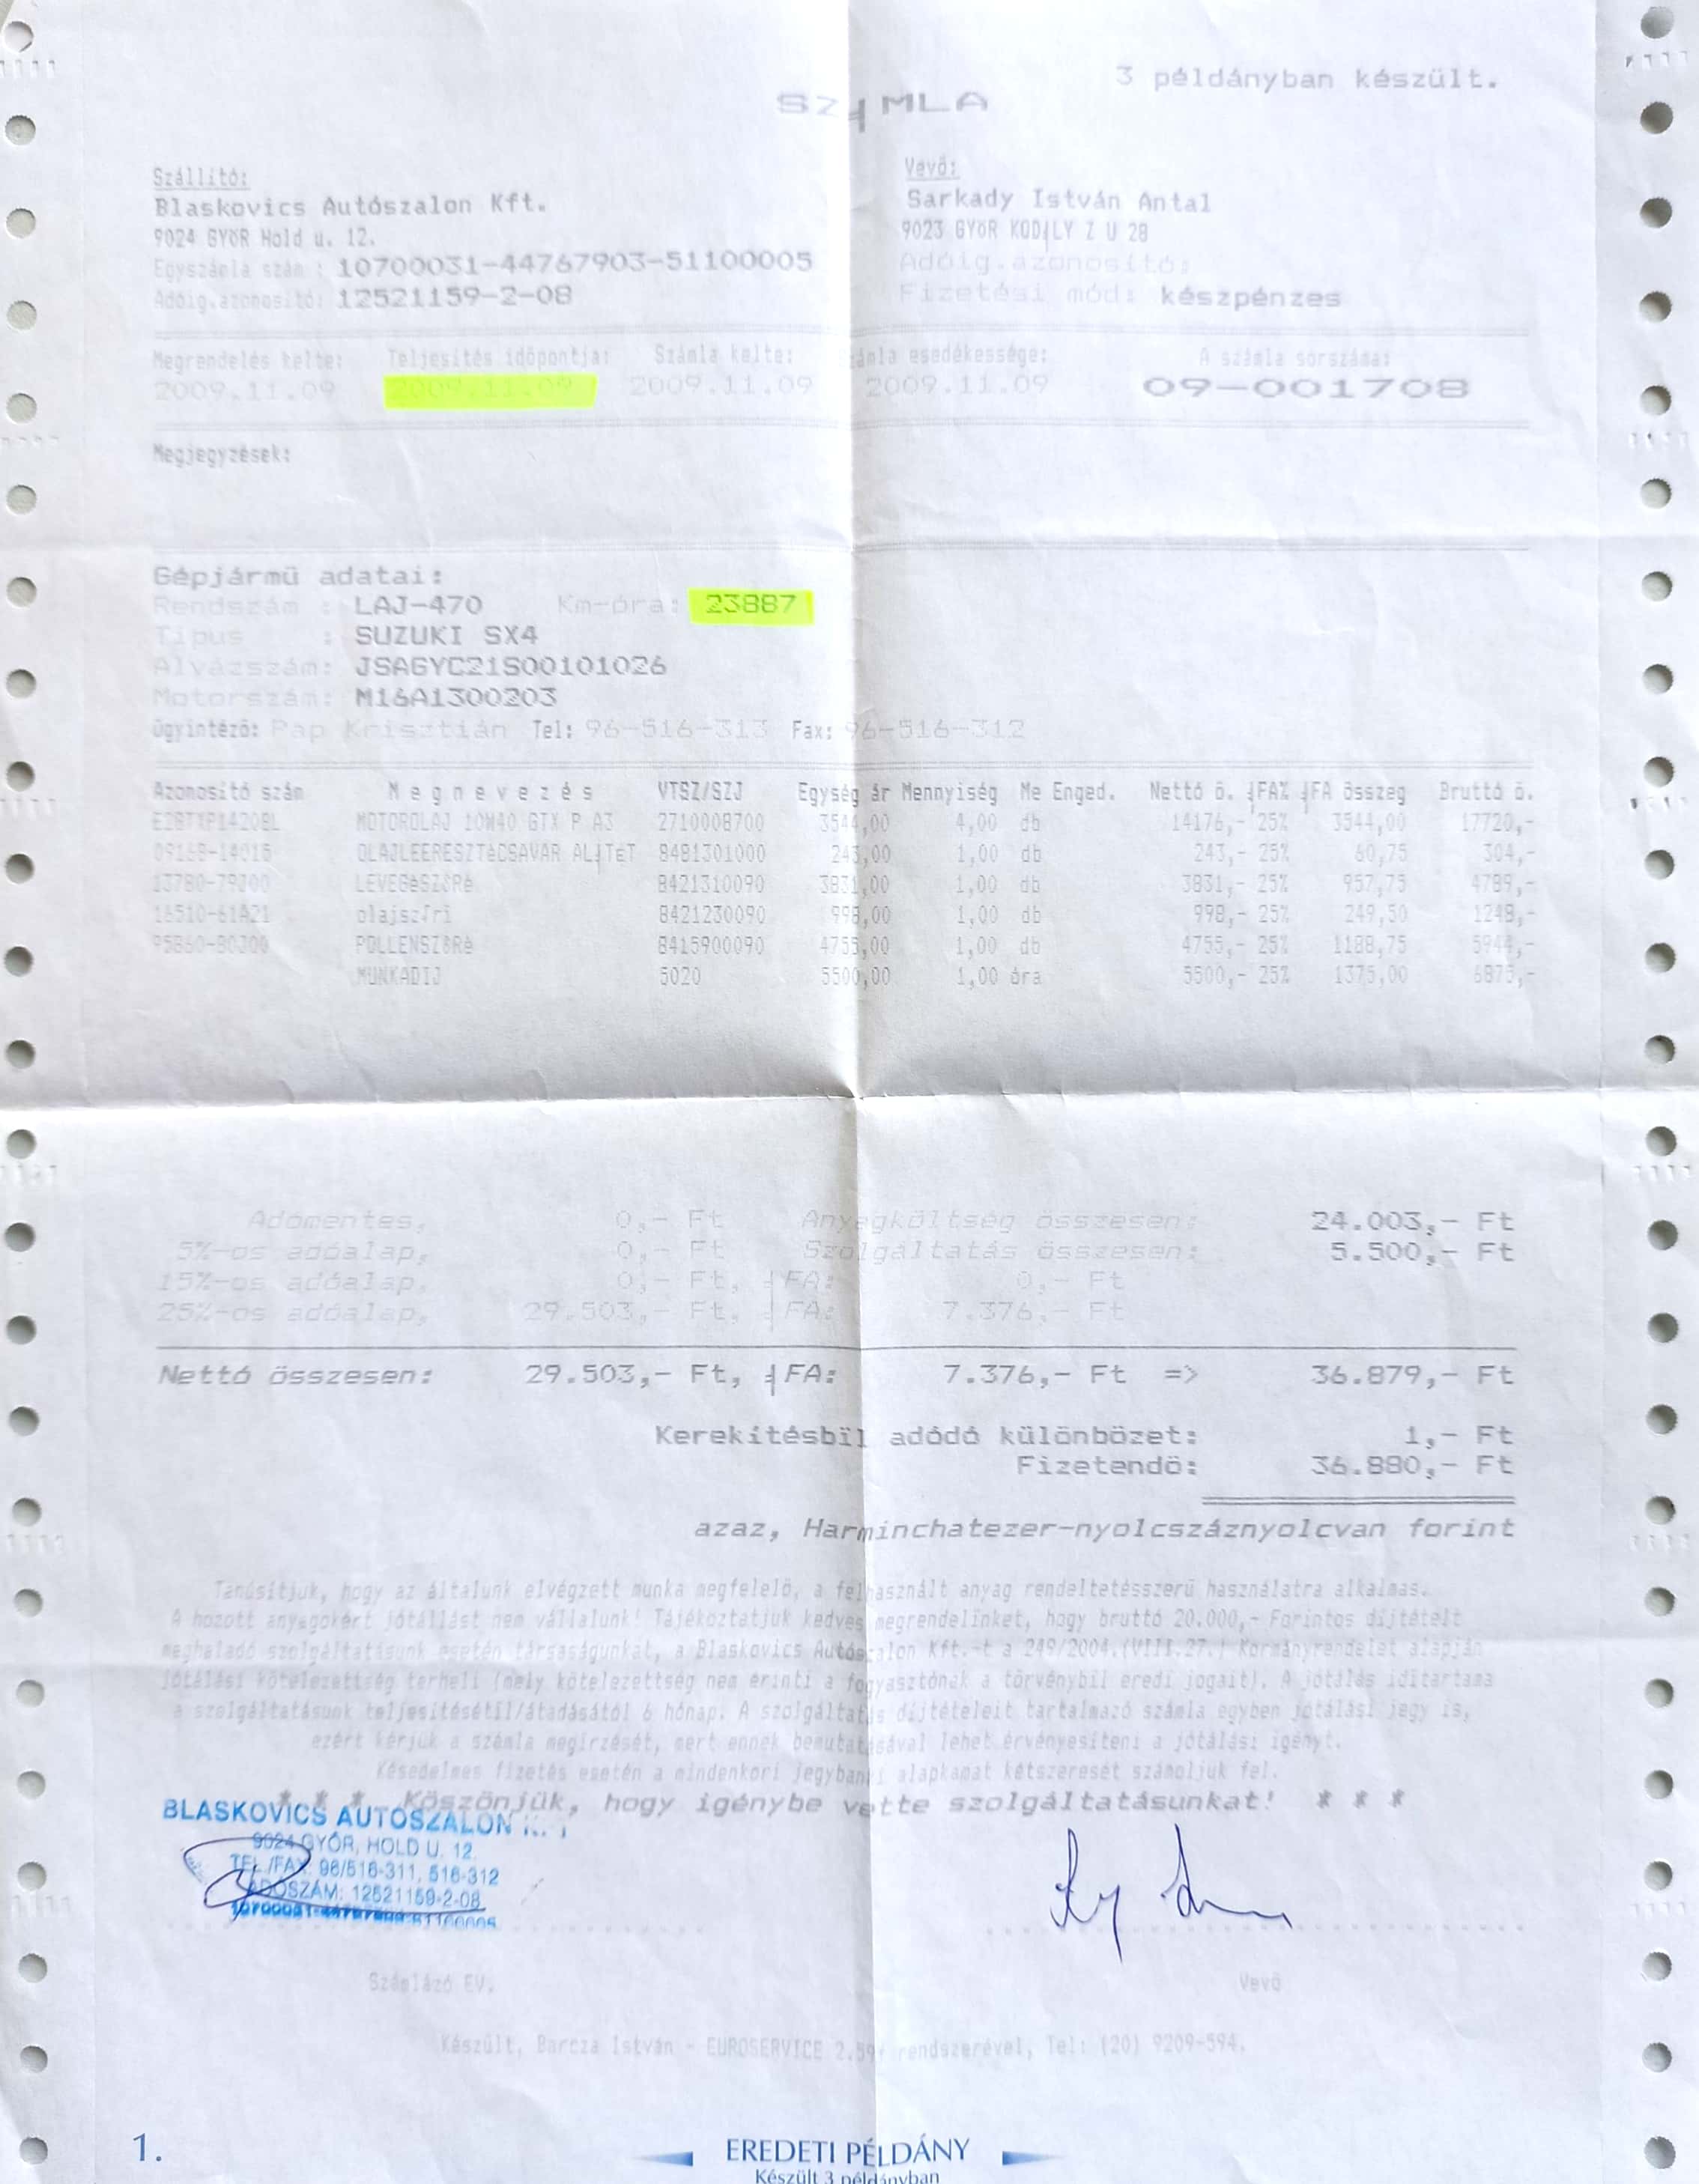 3 példányban készült.
SZ┤MLA
Szállító:
Blaskovics Autószalon Kft.
9024 GYöR Hold u. 12.
Egyszámla szám : 10700031-44767903-51100005
Adóig.azonosító: 12521159-2-08
Vevő:
Sarkady István Antal
9023 GYöR KOD┤LY Z U 28
Adóig.azonosító:
Fizetési mód: készpénzes
Megrendelés kelte: Teljesítés időpontja: Számla kelte: esedékessége: A számla sorszáma:
2009.11.09 2009.11.09 2009.11.09 2009.11.09 09-001708
Megjegyzések:
Gépjármű adatai:
Rendszám : LAJ-470 Km-óra: 23887
Típus : SUZUKI SX4
Alvázszám: JSAGYC21S00101026
Motorszám: M16A1300203
Ügyintéző: Pap Krisztián Tel: 96-516-313 Fax: 96-516-312
Azonosító szám Megnevezés VTSZ/SZJ Egység ár Mennyiség Me Enged. Nettó ö. ┤FA% ┤FA összeg Bruttó ö.
MOTOROLAJ 10W40 GTX P A3 2710008700 3544,00 4,00 db 14176,- 25% 3544,00 17720,-
09168-14015 OLAJLEERESZTèCSAVAR AL┤TéT 8481301000 243,00 1,00 db 243,- 25% 60,75 304,-
13780-79J00 LEVEGèSZŰRè 8421310090 3831,00 1,00 db 3831,- 25% 957,75 4789,-
16510-61A21 olajszűri 8421230090 998,00 1,00 db 998,- 25% 249,50 1248,-
95860-80J00 POLLENSZŰRè 8415900090 4755,00 1,00 db 4755,- 25% 1188,75 5944,-
MUNKADIJ 5020 5500,00 1,00 óra 5500,- 25% 1375,00 6875,-
Adómentes, 0,- Ft Anyagköltség összesen: 24.003,- Ft
5%-os adóalap, 0,- Ft Szolgáltatás összesen: 5.500,- Ft
15%-os adóalap, 0,- Ft, ┤FA: 0,- Ft
25%-os adóalap, 29.503,- Ft, ┤FA: 7.376,- Ft
Nettó összesen: 29.503,- Ft, ┤FA: 7.376,- Ft => 36.879,- Ft
Kerekítésbïl adódó különbözet: 1,- Ft
Fizetendö: 36.880,- Ft
azaz, Harminchatezer-nyolcszáznyolcvan forint
Tanúsítjuk, hogy az általunk elvégzett munka megfelelő, a felhasznált anyag rendeltetésszerű használatra alkalmas.
A hozott anyagokért jótállást nem vállalunk! Tájékoztatjuk kedves megrendelïnket, hogy bruttó 20.000,- Forintos díjtételt
meghaladó szolgáltatásunk esetén társaságunkat, a Blaskovics Autószalon Kft.-t a 249/2004.(VIII.27.) Kormányrendelet alapján
jótállási kötelezettség terheli (mely kötelezettség nem érinti a fogyasztónak a törvénybïl eredï jogait). A jótállás idïtartama
a szolgáltatásunk teljesítésétïl/átadásától 6 hónap. A szolgáltatás díjtételeit tartalmazó számla egyben jótállási jegy is,
ezért kérjük a számla megïrzését, mert ennek bemutatásával lehet érvényesíteni a jótállási igényt.
Késedelmes fizetés esetén a mindenkori jegybanki alapkamat kétszeresét számoljuk fel.
* * * Köszönjük, hogy igénybe vette szolgáltatásunkat! * * *
BLASKOVICS AUTÓSZALON
9024 GYŐR, HOLD U. 12.
TEL/FAX: 96/516-311, 516-312
ADÓSZÁM: 12521159-2-08
10700031-44767903-51100005
Számlázó EV.
Vevő
Készült, Barcza István - EUROSERVICE rendszerével, Tel: (20) 9209-594.
1.
EREDETI PÉLDÁNY
Készült 3 példányban